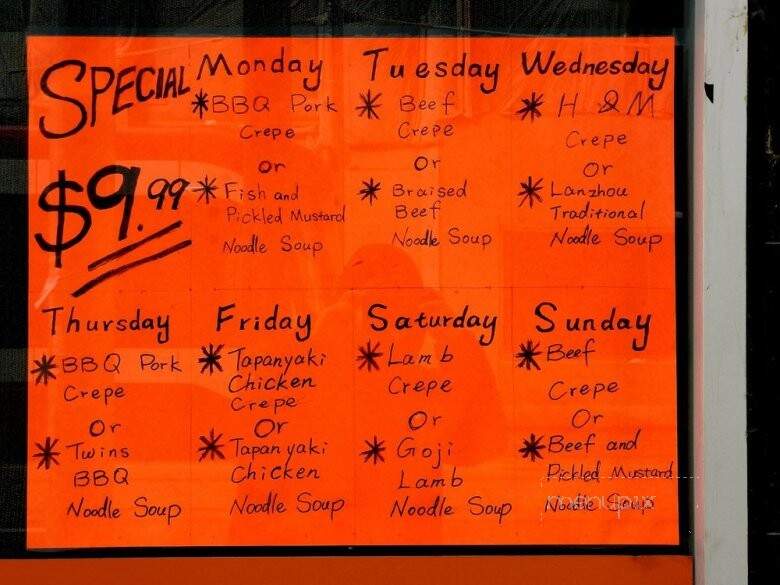 SPECIAL
$9.99
Monday
*BBQ Pork
Crepe
or
*Fish and
Pickled Mustard
Noodle Soup
Tuesday
* Beef
Crepe
Or
* Braised
Beef
Noodle Soup
Wednesday
* H &M
Crepe
Or
* Lanzhou
Traditional
Noodle Soup
Thursday
*BBQ Pork
Crepe
Or
* Twins
BBQ
Noodle Soup
Friday
*Tapanyaki
Chicken
Crepe
Or
*Tapanyaki
Chicken
Noodle Soup
Saturday
*Lamb
Crepe
Or
* Goji
Lamb
Noodle Soup
Sunday
*Beef
Crepe
Or
*Beef and
Pickled Mustard
Noodle Soup
menupix